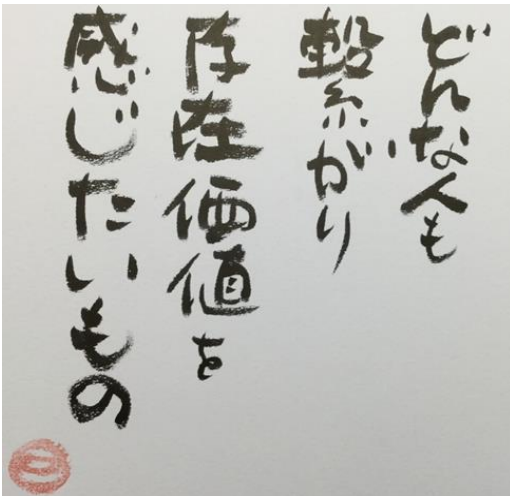 どんな人も
繋がり
存在価値を
感じたいもの